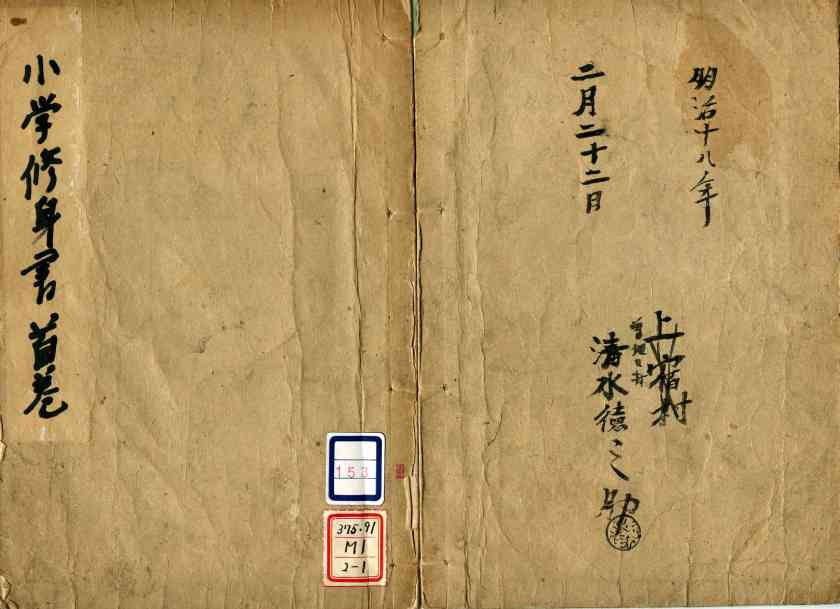 明治十八年
二月二十二日
上宿村
清水德之助
小学修身書首巻
153
375.91
M1
2-1